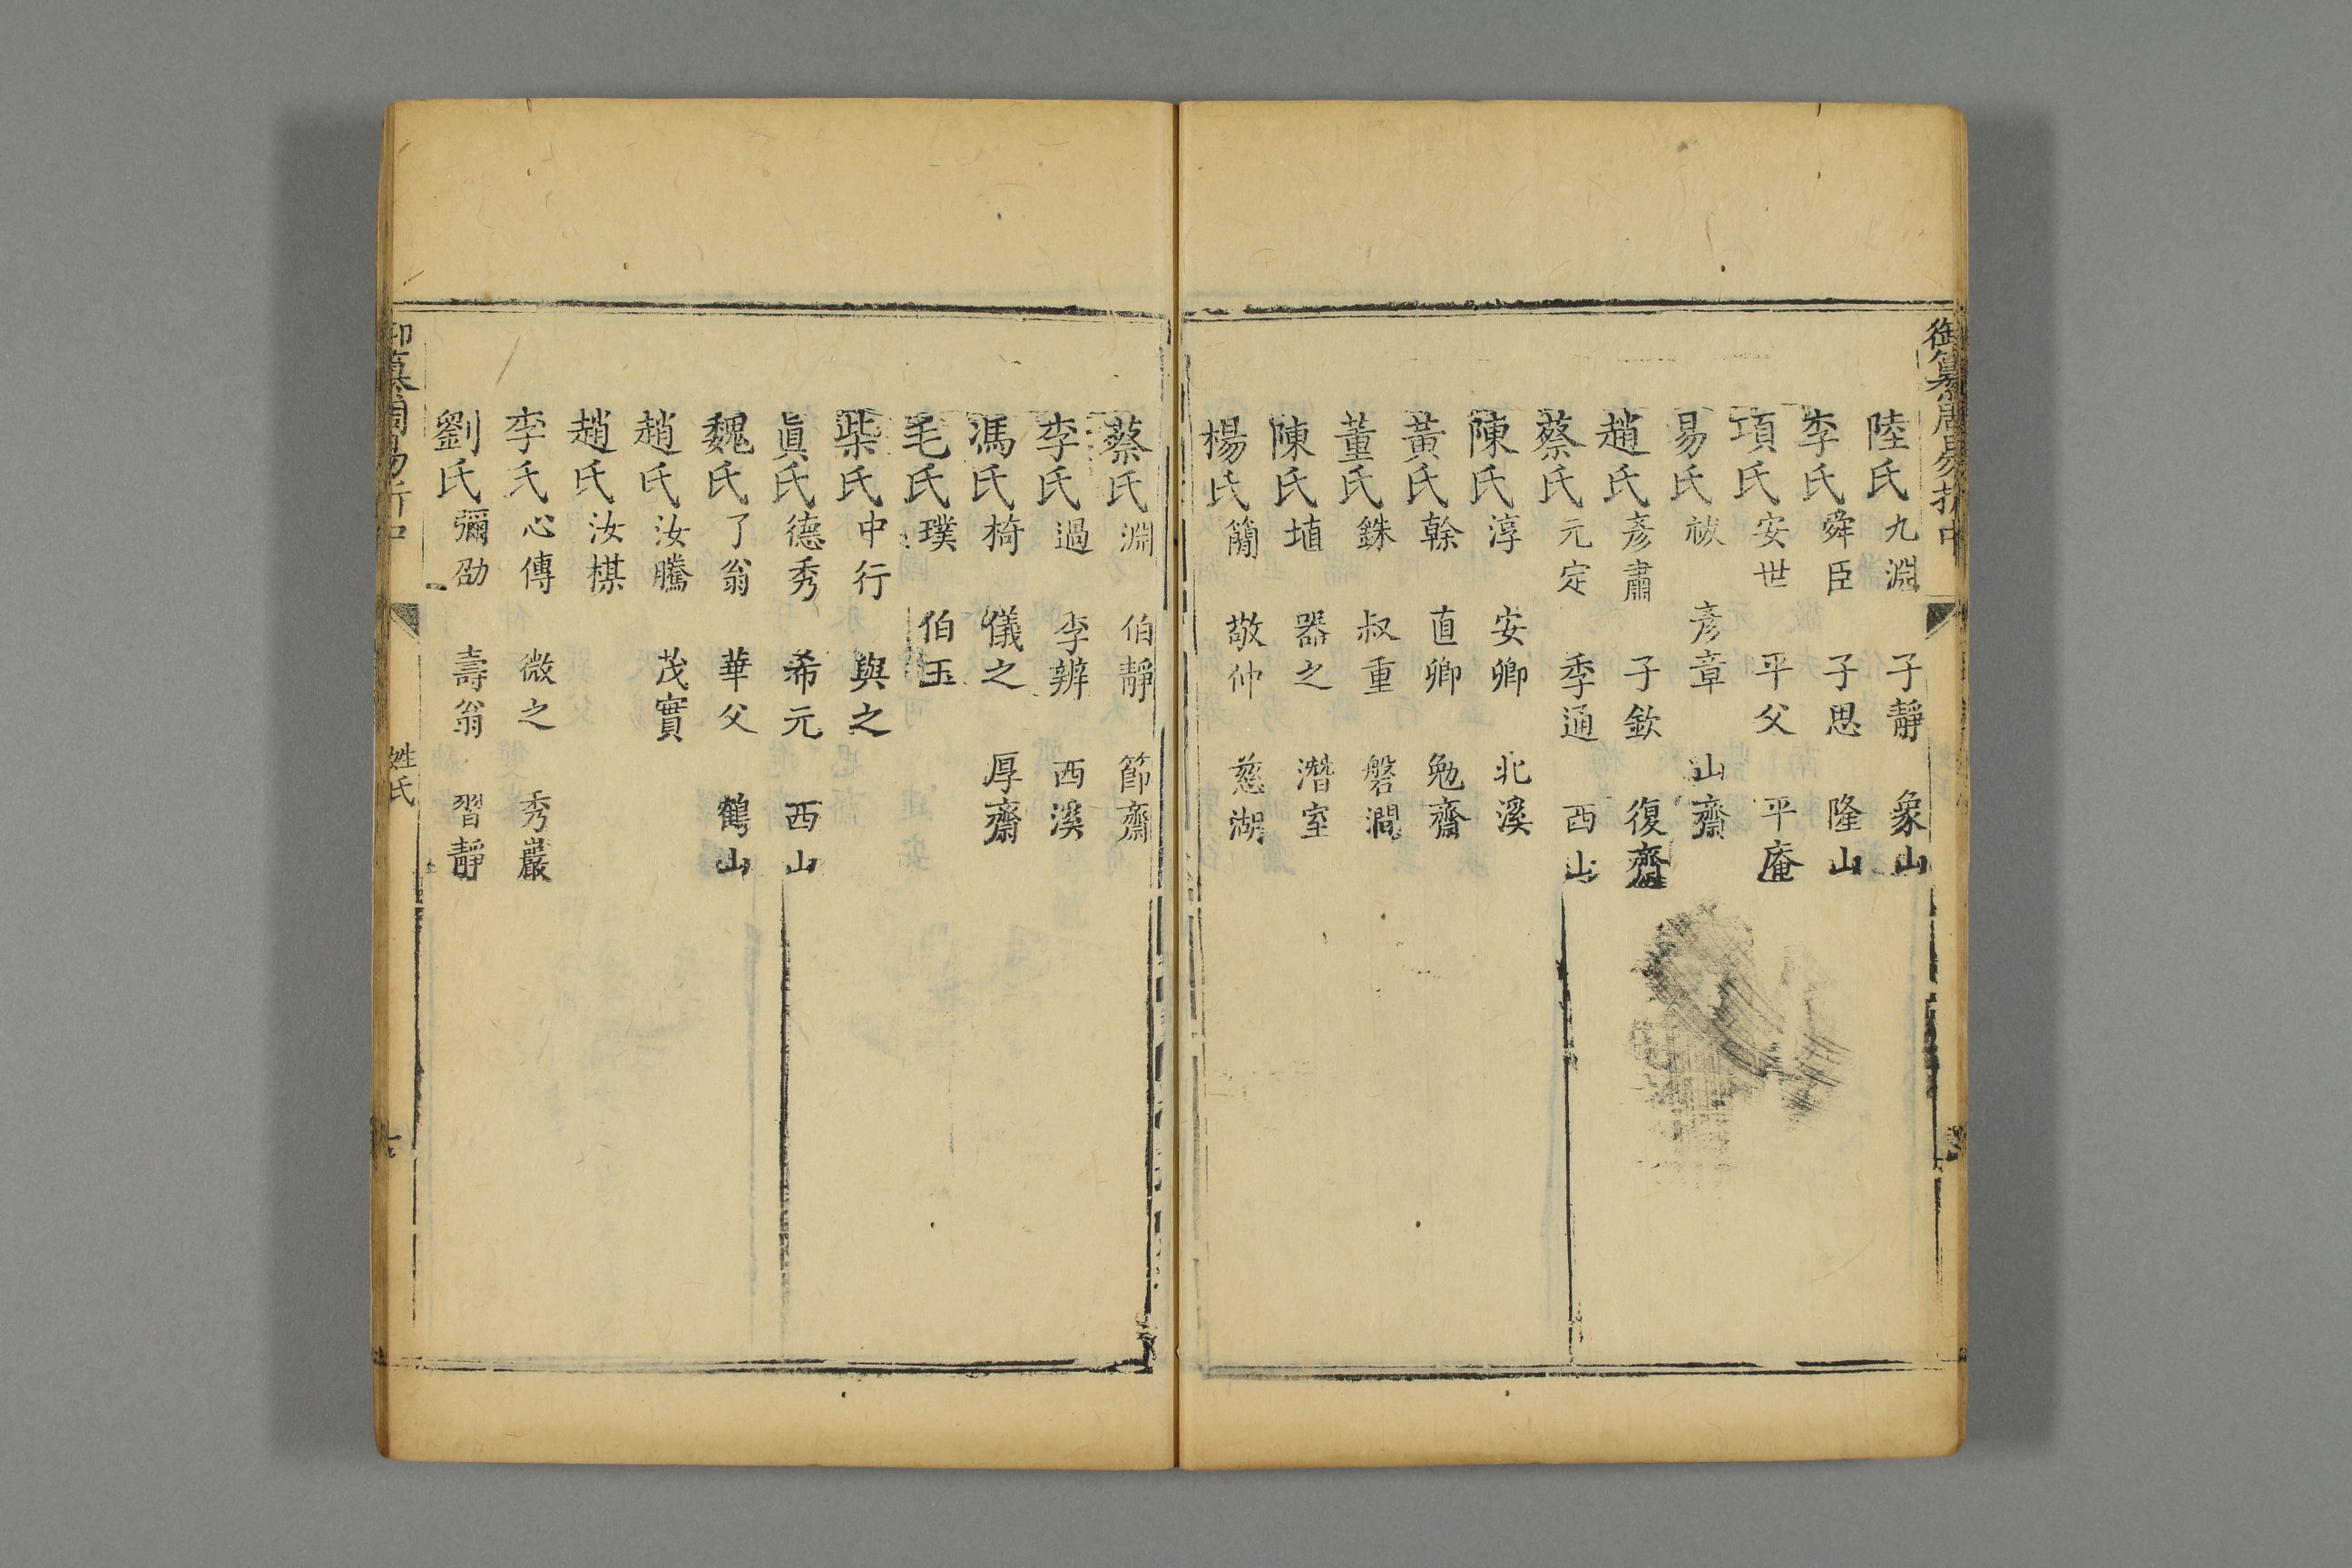 御纂周易折中
陸氏九淵 子靜 象山
李氏舜臣 子思 隆山
項氏安世 平父 平庵
易氏祓 彥章 山齋
趙氏彥肅 子欽 復齋
蔡氏元定 季通 西山
陳氏淳 安卿 北溪
黃氏榦 直卿 勉齋
董氏銖 叔重 磐澗
陳氏埴 器之 潛室
楊氏簡 敬仲 慈湖
蔡氏淵 伯靜 節齋
李氏過 季辨 西溪
馮氏椅 儀之 厚齋
毛氏璞 伯玉
柴氏中行 與之
眞氏德秀 希元 西山
魏氏了翁 華父 鶴山
趙氏汝騰 茂實
趙氏汝楳
李氏心傳 微之 秀巖
劉氏彌劭 壽翁 習靜
御纂周易折中 姓氏